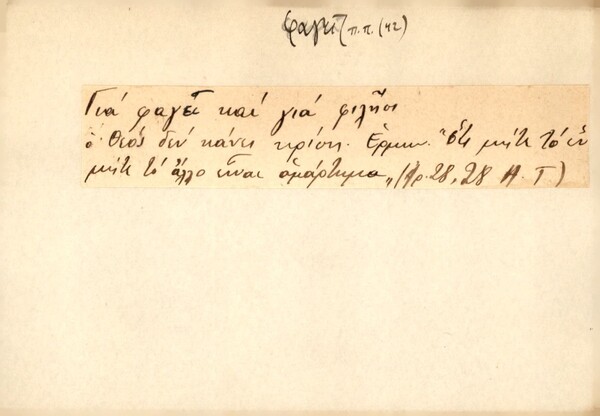 φαγεῖ π.π. (42)
Γιά φαγεῖ καί γιά φιλῆσι
ὁ Θεός δέν κάνει κρίση. Ἑρμην. "Ὅτι μήτε τό ἕν
μήτε τό ἄλλο εἶναι ἁμάρτημα„ (Ἀρ. 28, 28 Α. Γ)